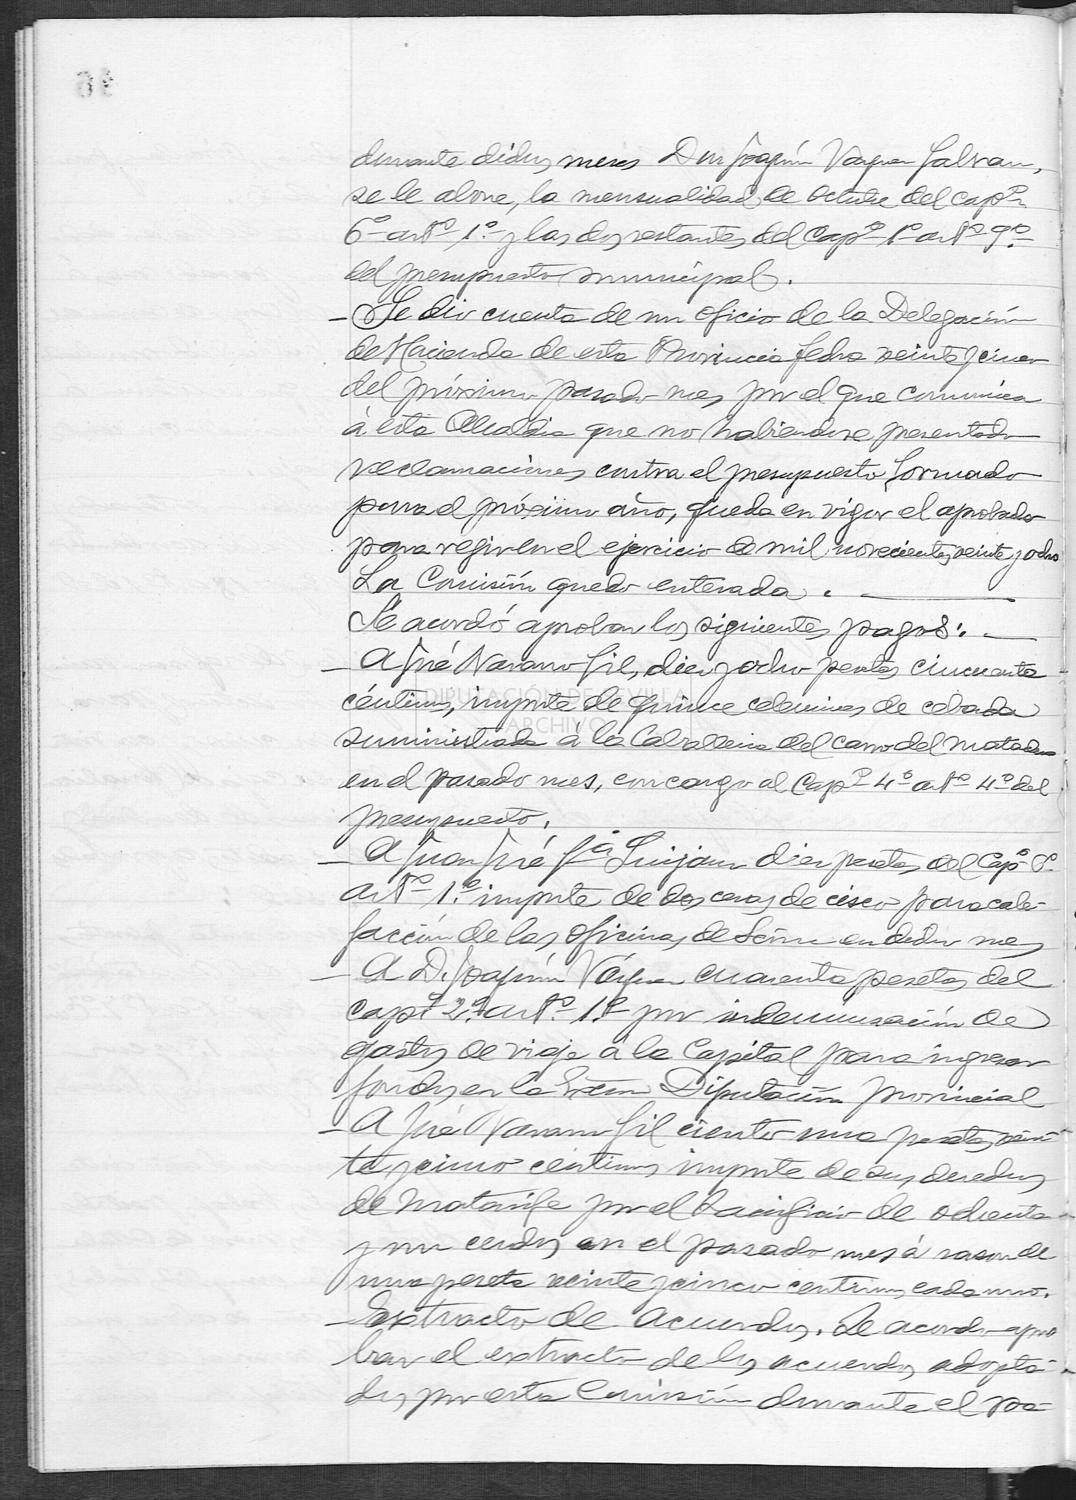 durante dichos meses Don Joaquín Vázquez Galvan,
se le abone, la mensualidad de octubre del capº
6º artº 1º y las dos restantes del Capº 1º artº 9º
del presupuesto municipal.
- Se dio cuenta de un oficio de la Delegación
de Hacienda de esta Provincia fecha veinte y cinco
del próximo pasado mes por el que comunica
á esta Alcaldia que no habiendose presentado
reclamaciones contra el presupuesto formado
para el próximo año, queda en vigor el aprobado
para regir en el ejercicio de mil novecientos veinte y ocho
La Comisión quedo enterada.
Se acordó aprobar los siguientes pagos:
- A José Navarro Gil, diez y ocho pesetas cincuenta
céntimos, importe de quince celemines de cebada
DIPUTACIÓN DE SEVILLA
ARCHIVO
suministrada a la Caballeria del carro del Matadero
en el pasado mes, con cargo al Capº 4º artº 4º del
presupuesto.
- A Juan José Gª Luijan diez pesetas del Capº 6º
artº 1º importe de dos ceras de cisco para cale-
facción de las oficinas de en dicho mes
- A D. Joaquín Vázquez cuarenta pesetas del
capº 2º artº 1º por indemnización de
gastos de viaje a la Capital para ingresar
fondos en la Excma Diputación provincial
- A José Navarro Gil ciento una pesetas vein-
te y cinco céntimos importe de sus derechos
de Matarife por el sacrificio de ochenta
y un cerdos en el pasado mes á razon de
una peseta veinte y cinco centimos cada uno.
- Extracto de Acuerdos. Se acordo apro
bar el extracto de los acuerdos adopta-
dos por esta Comisión durante el pa-
46